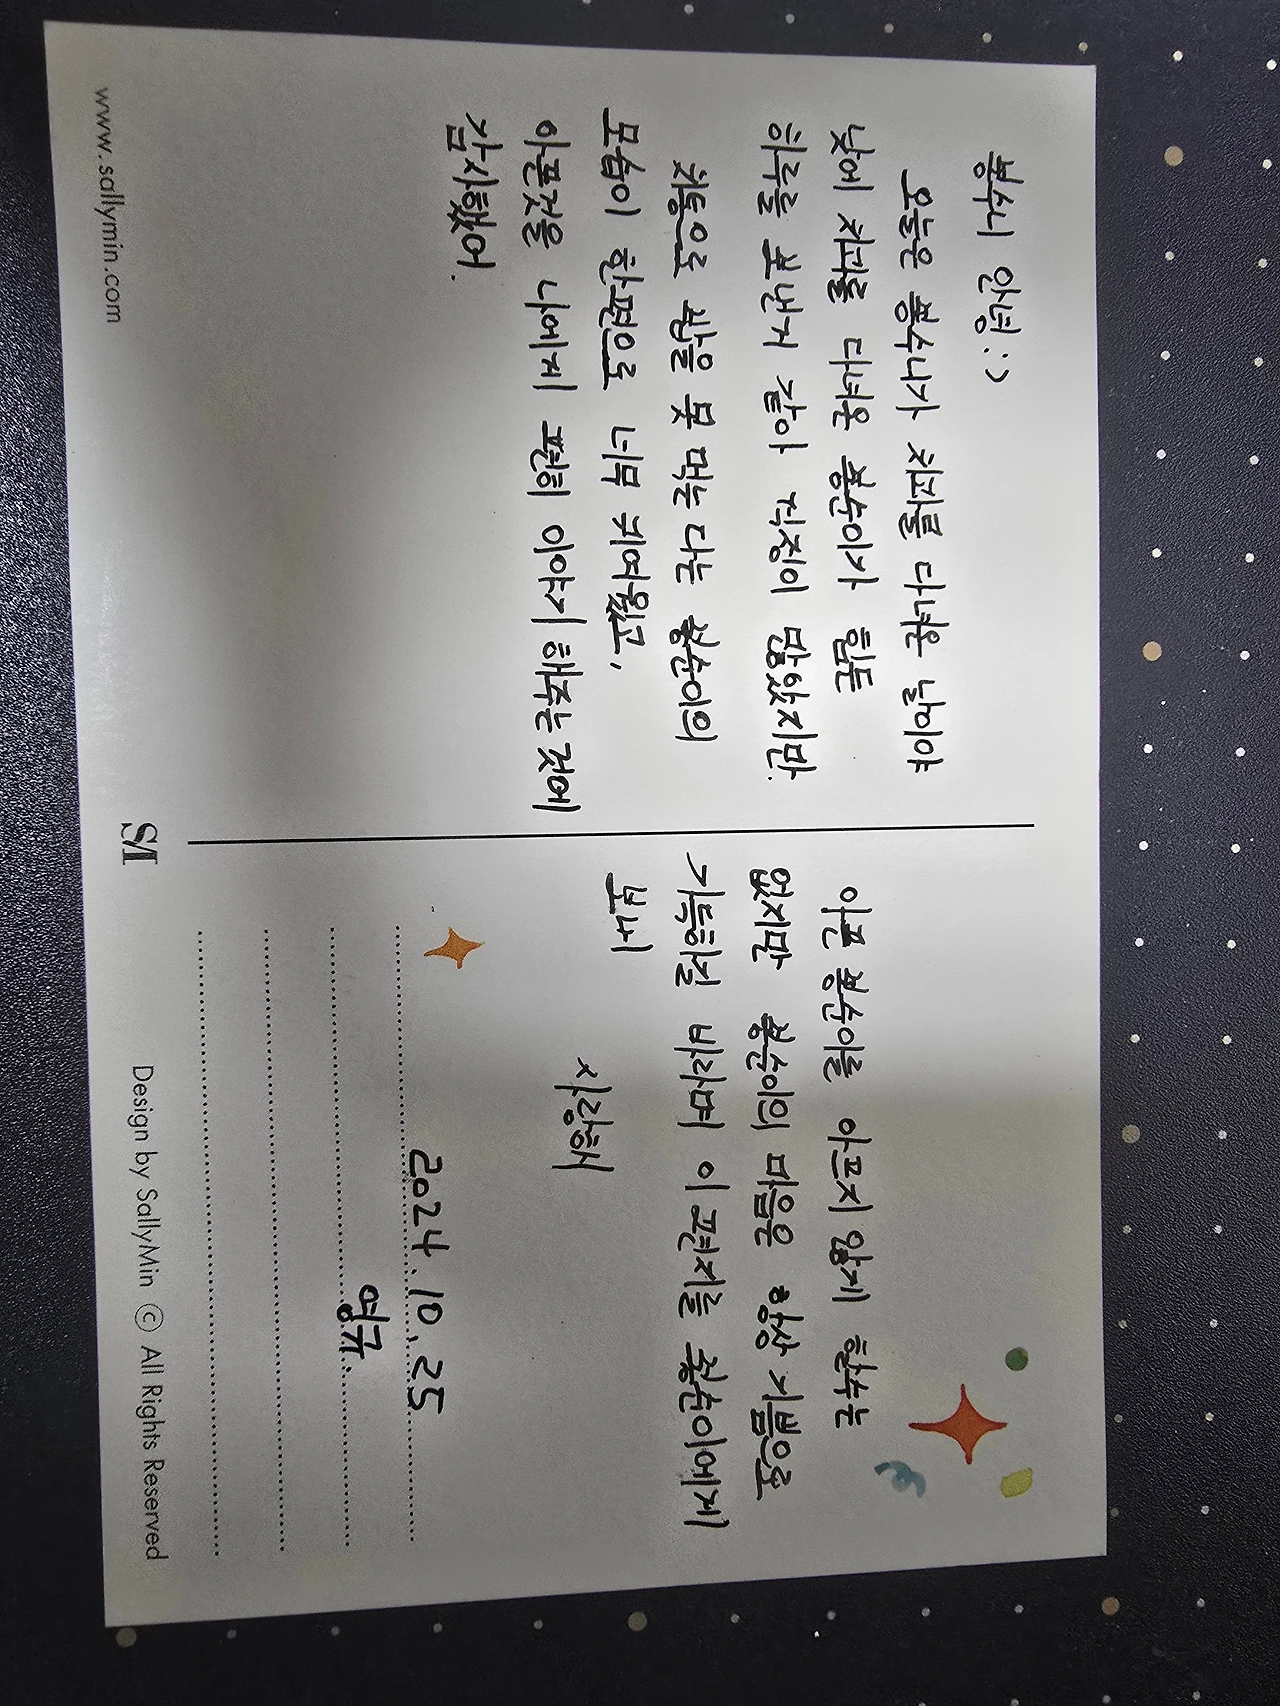 봉수니 안녕:)
오늘은 봉수니가 치과를 다녀온 날이야
낮에 치과를 다녀온 봉순이가 힘든
하루를 보낸거 같아 걱정이 많았지만.
치통으로 밥을 못 먹는 다는 봉순이의
모습이 한편으로 너무 귀여웠고,
아픈것을 나에게 편히 이야기 해주는 것에
감사했어.
아픈 봉순이를 아프지 않게 할수는
없지만 봉순이의 마음은 항상 기쁨으로
가득하길 바라며 이 편지를 봉순이에게
보내
사랑해
2024.10.25
영규.
www.sallymin.com
SM
Design by SallyMin ⓒ All Rights Reserved